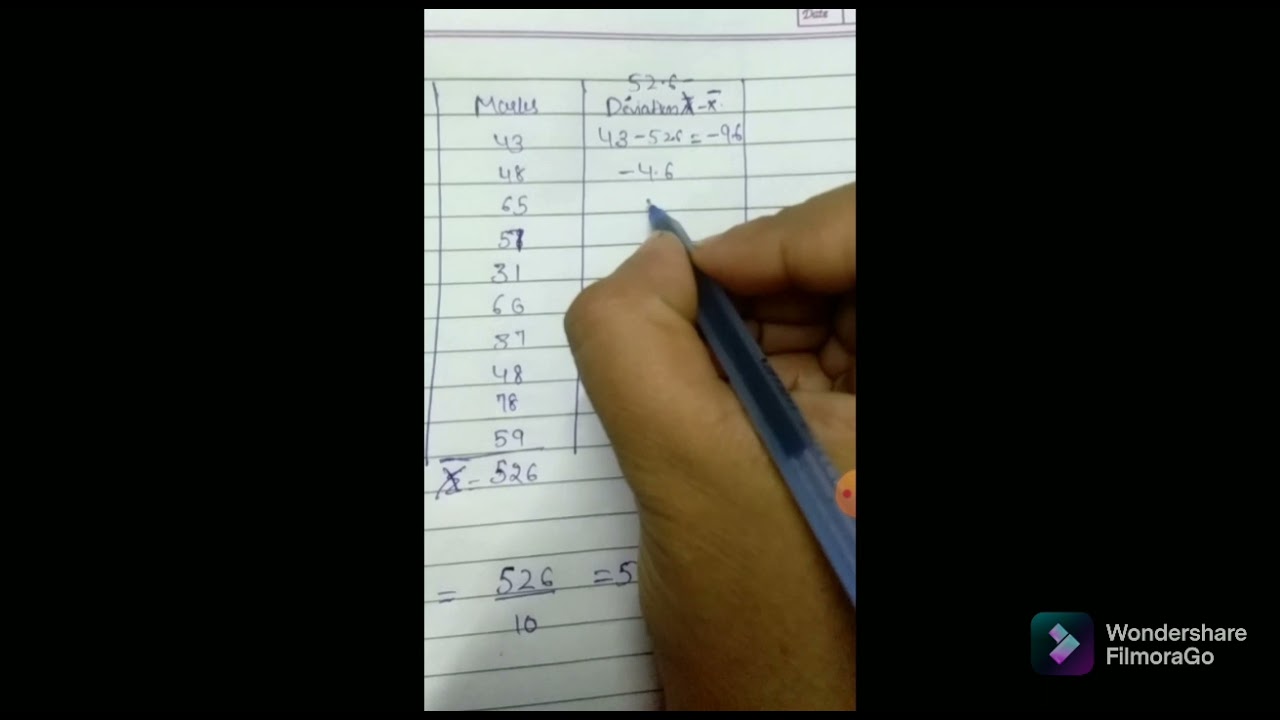 Date
52.6-
Marks Deviation X-x̄
43 43-52.6=-9.6
48 -4.6
65
57
31
60
37
48
78
59
X̄= 526
= 526 =5
10
Wondershare
FilmoraGo